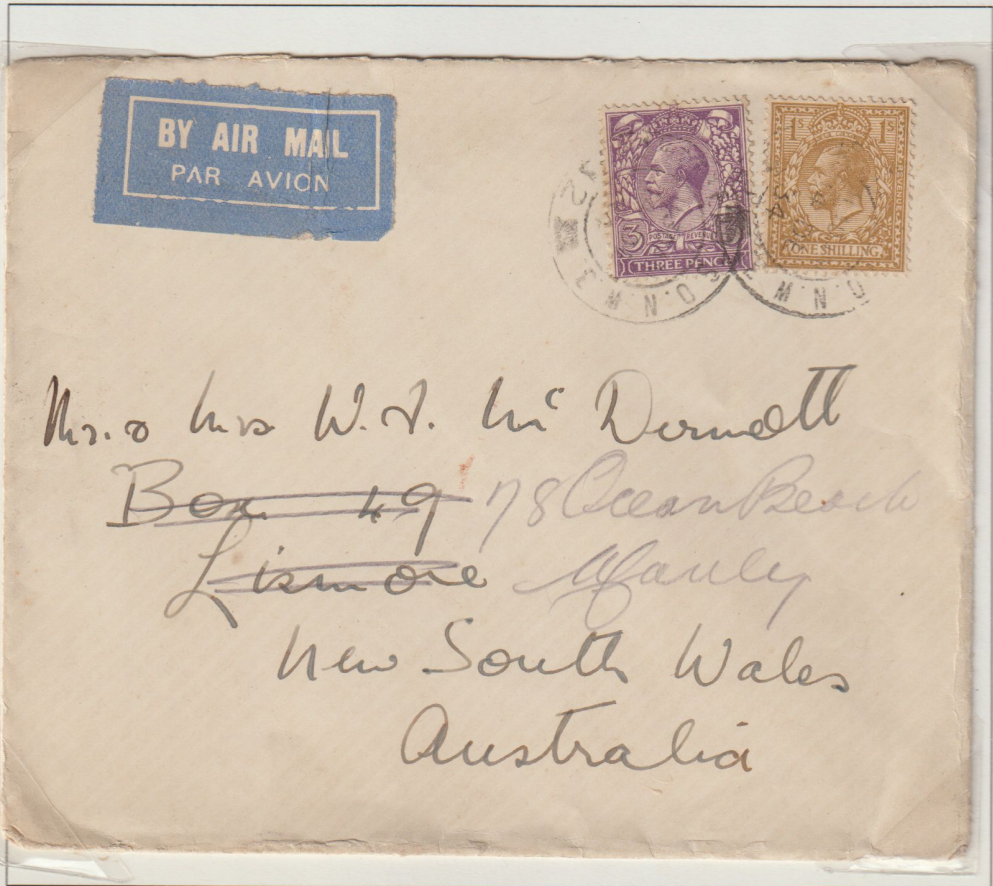 BY AIR MAIL
PAR AVION
3
POSTAGE REVENUE
THREE PENCE
1s 1s
ONE SHILLING
N.W.3
N.W.
Mr. & Mrs W. J. Mc Dermott
Box 49 78 Ocean Beach
Lismore Manly
New South Wales
Australia